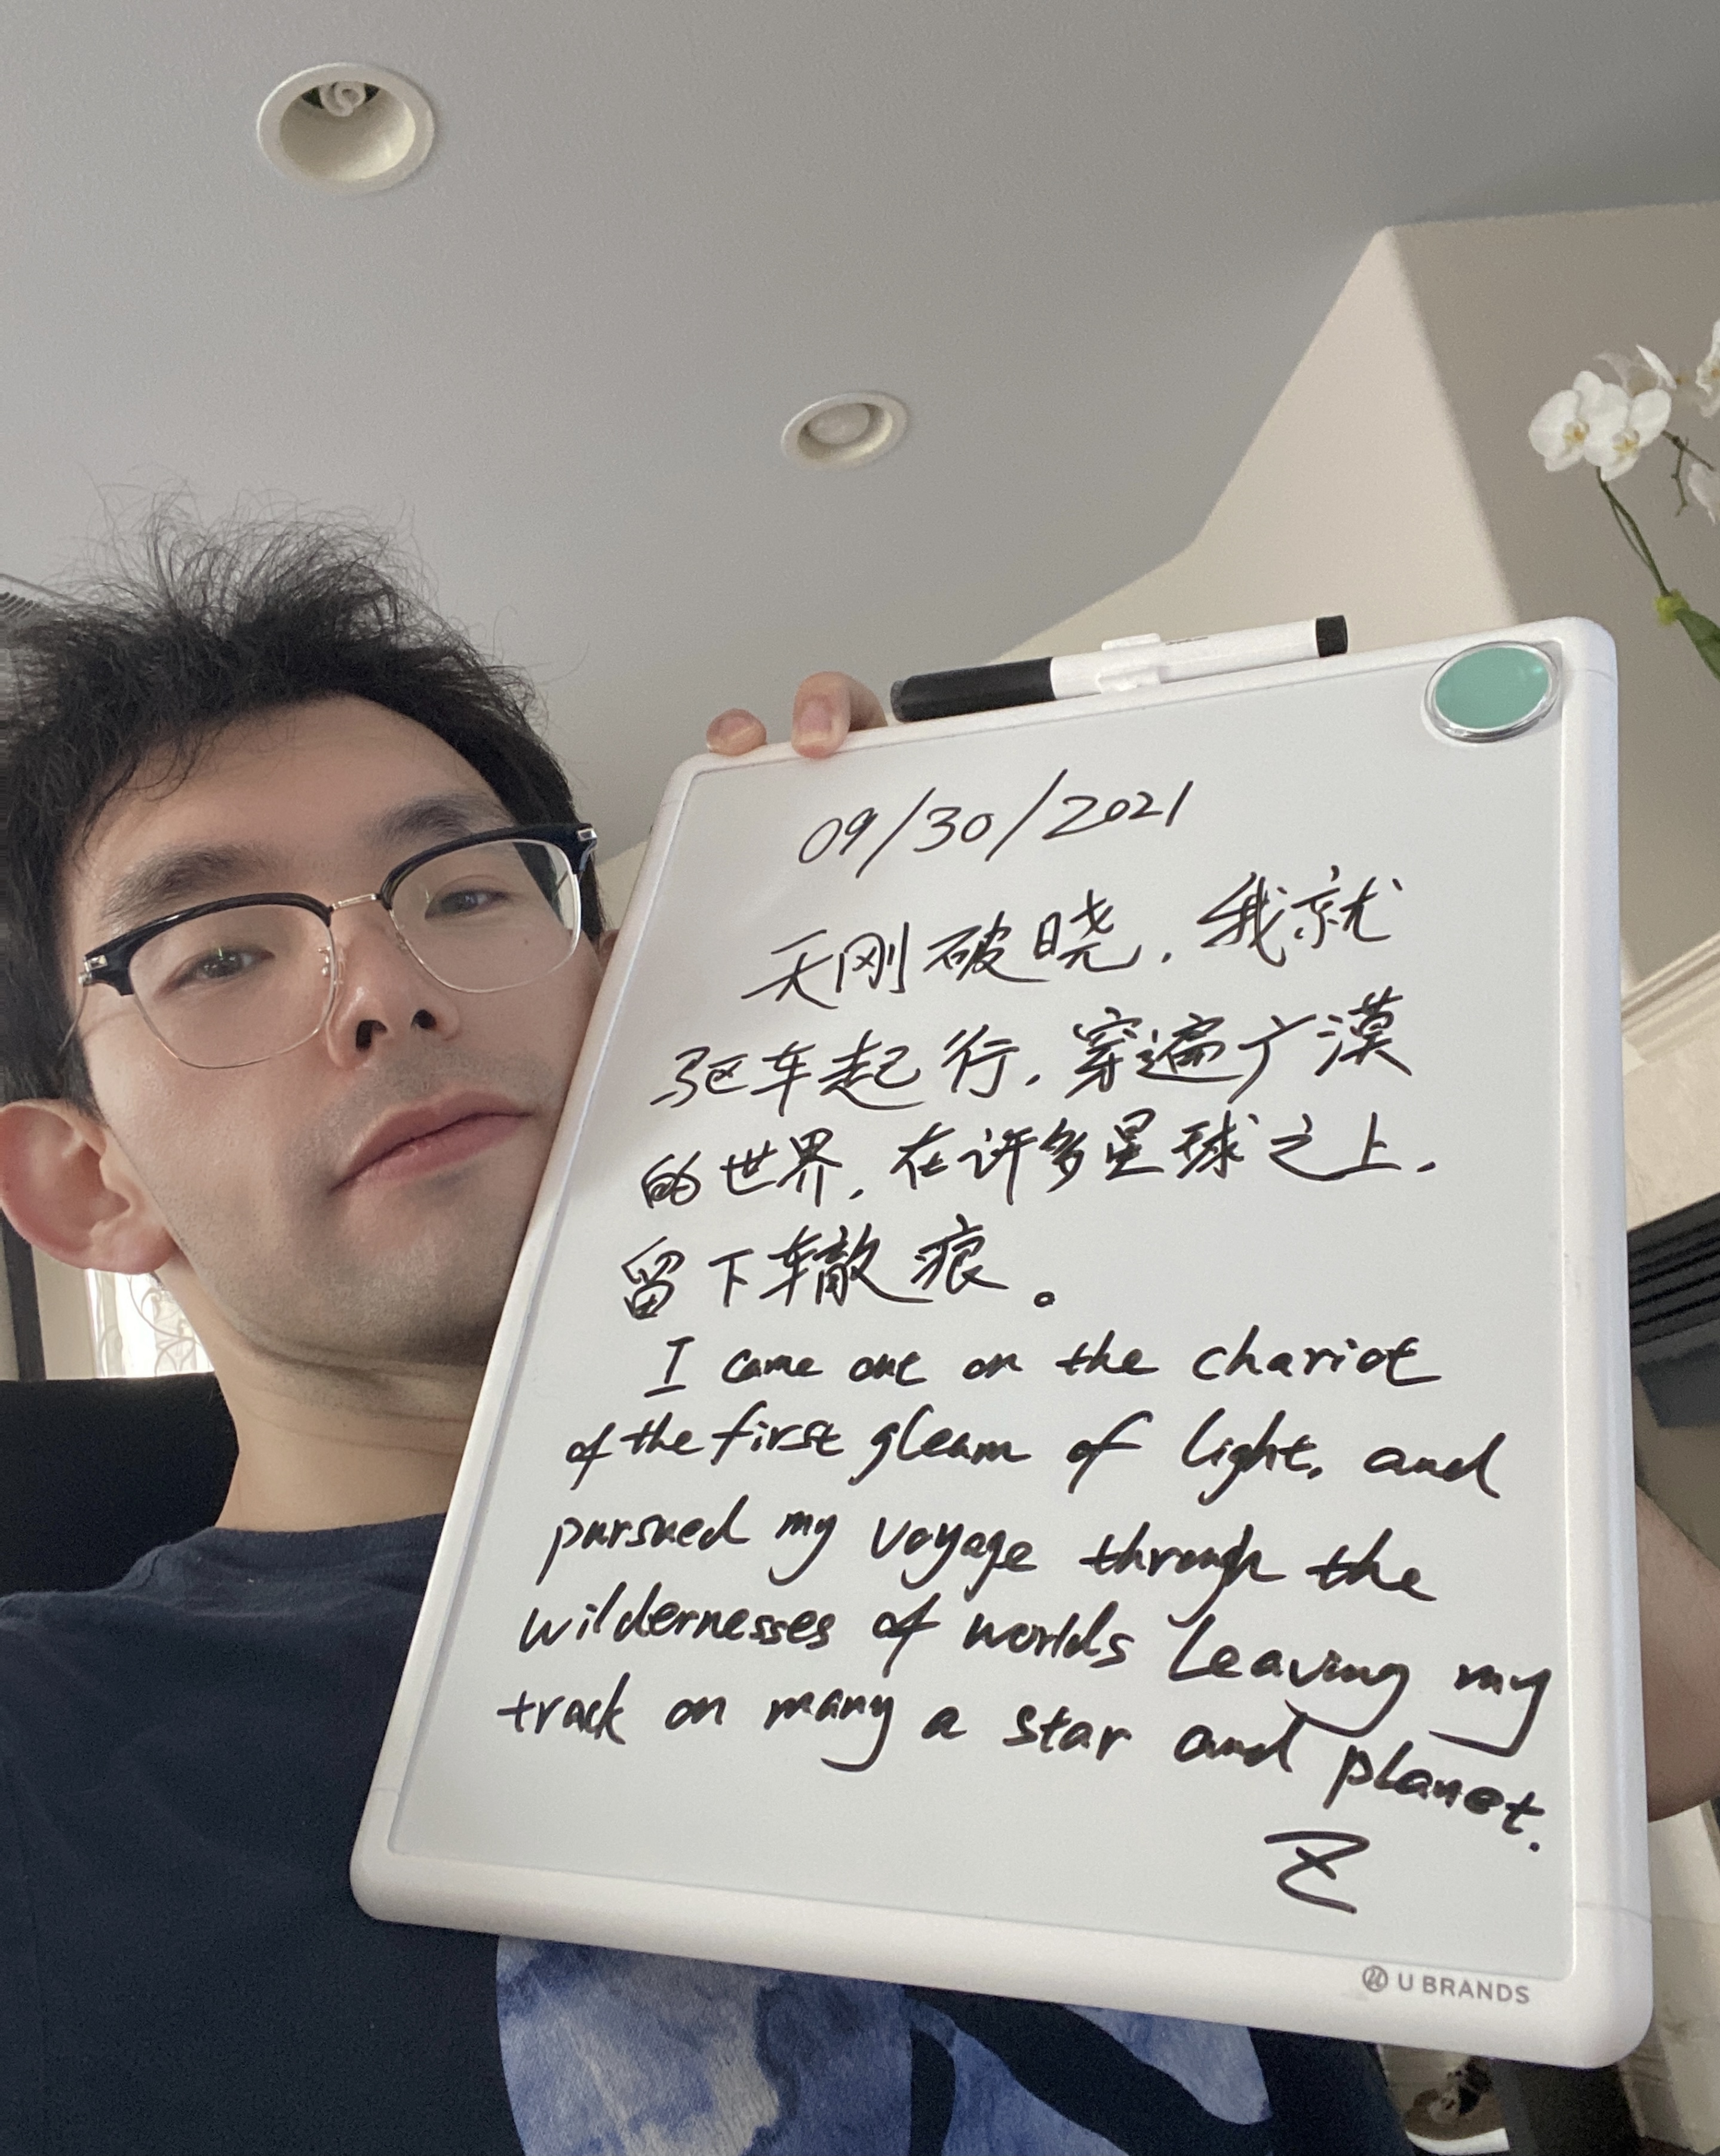 09/30/2021
天刚破晓,我就
驱车起行,穿遍广漠
的世界,在许多星球之上,
留下车辙痕。
I came out on the chariot
of the first gleam of light, and
pursued my voyage through the
wildernesses of worlds Leaving my
track on many a star and planet.
U BRANDS